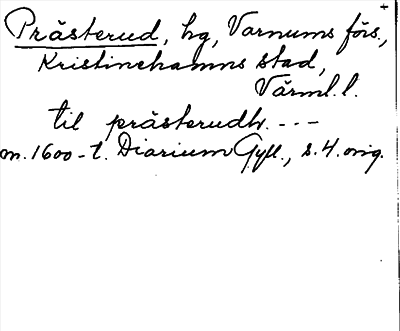 Prästerud, hg, Varnums förs.,
Kristinehamns stad,
Värml. l.
til prästerudh. - - -
m. 1600-t. Diarium Gyll., s. 4. orig.